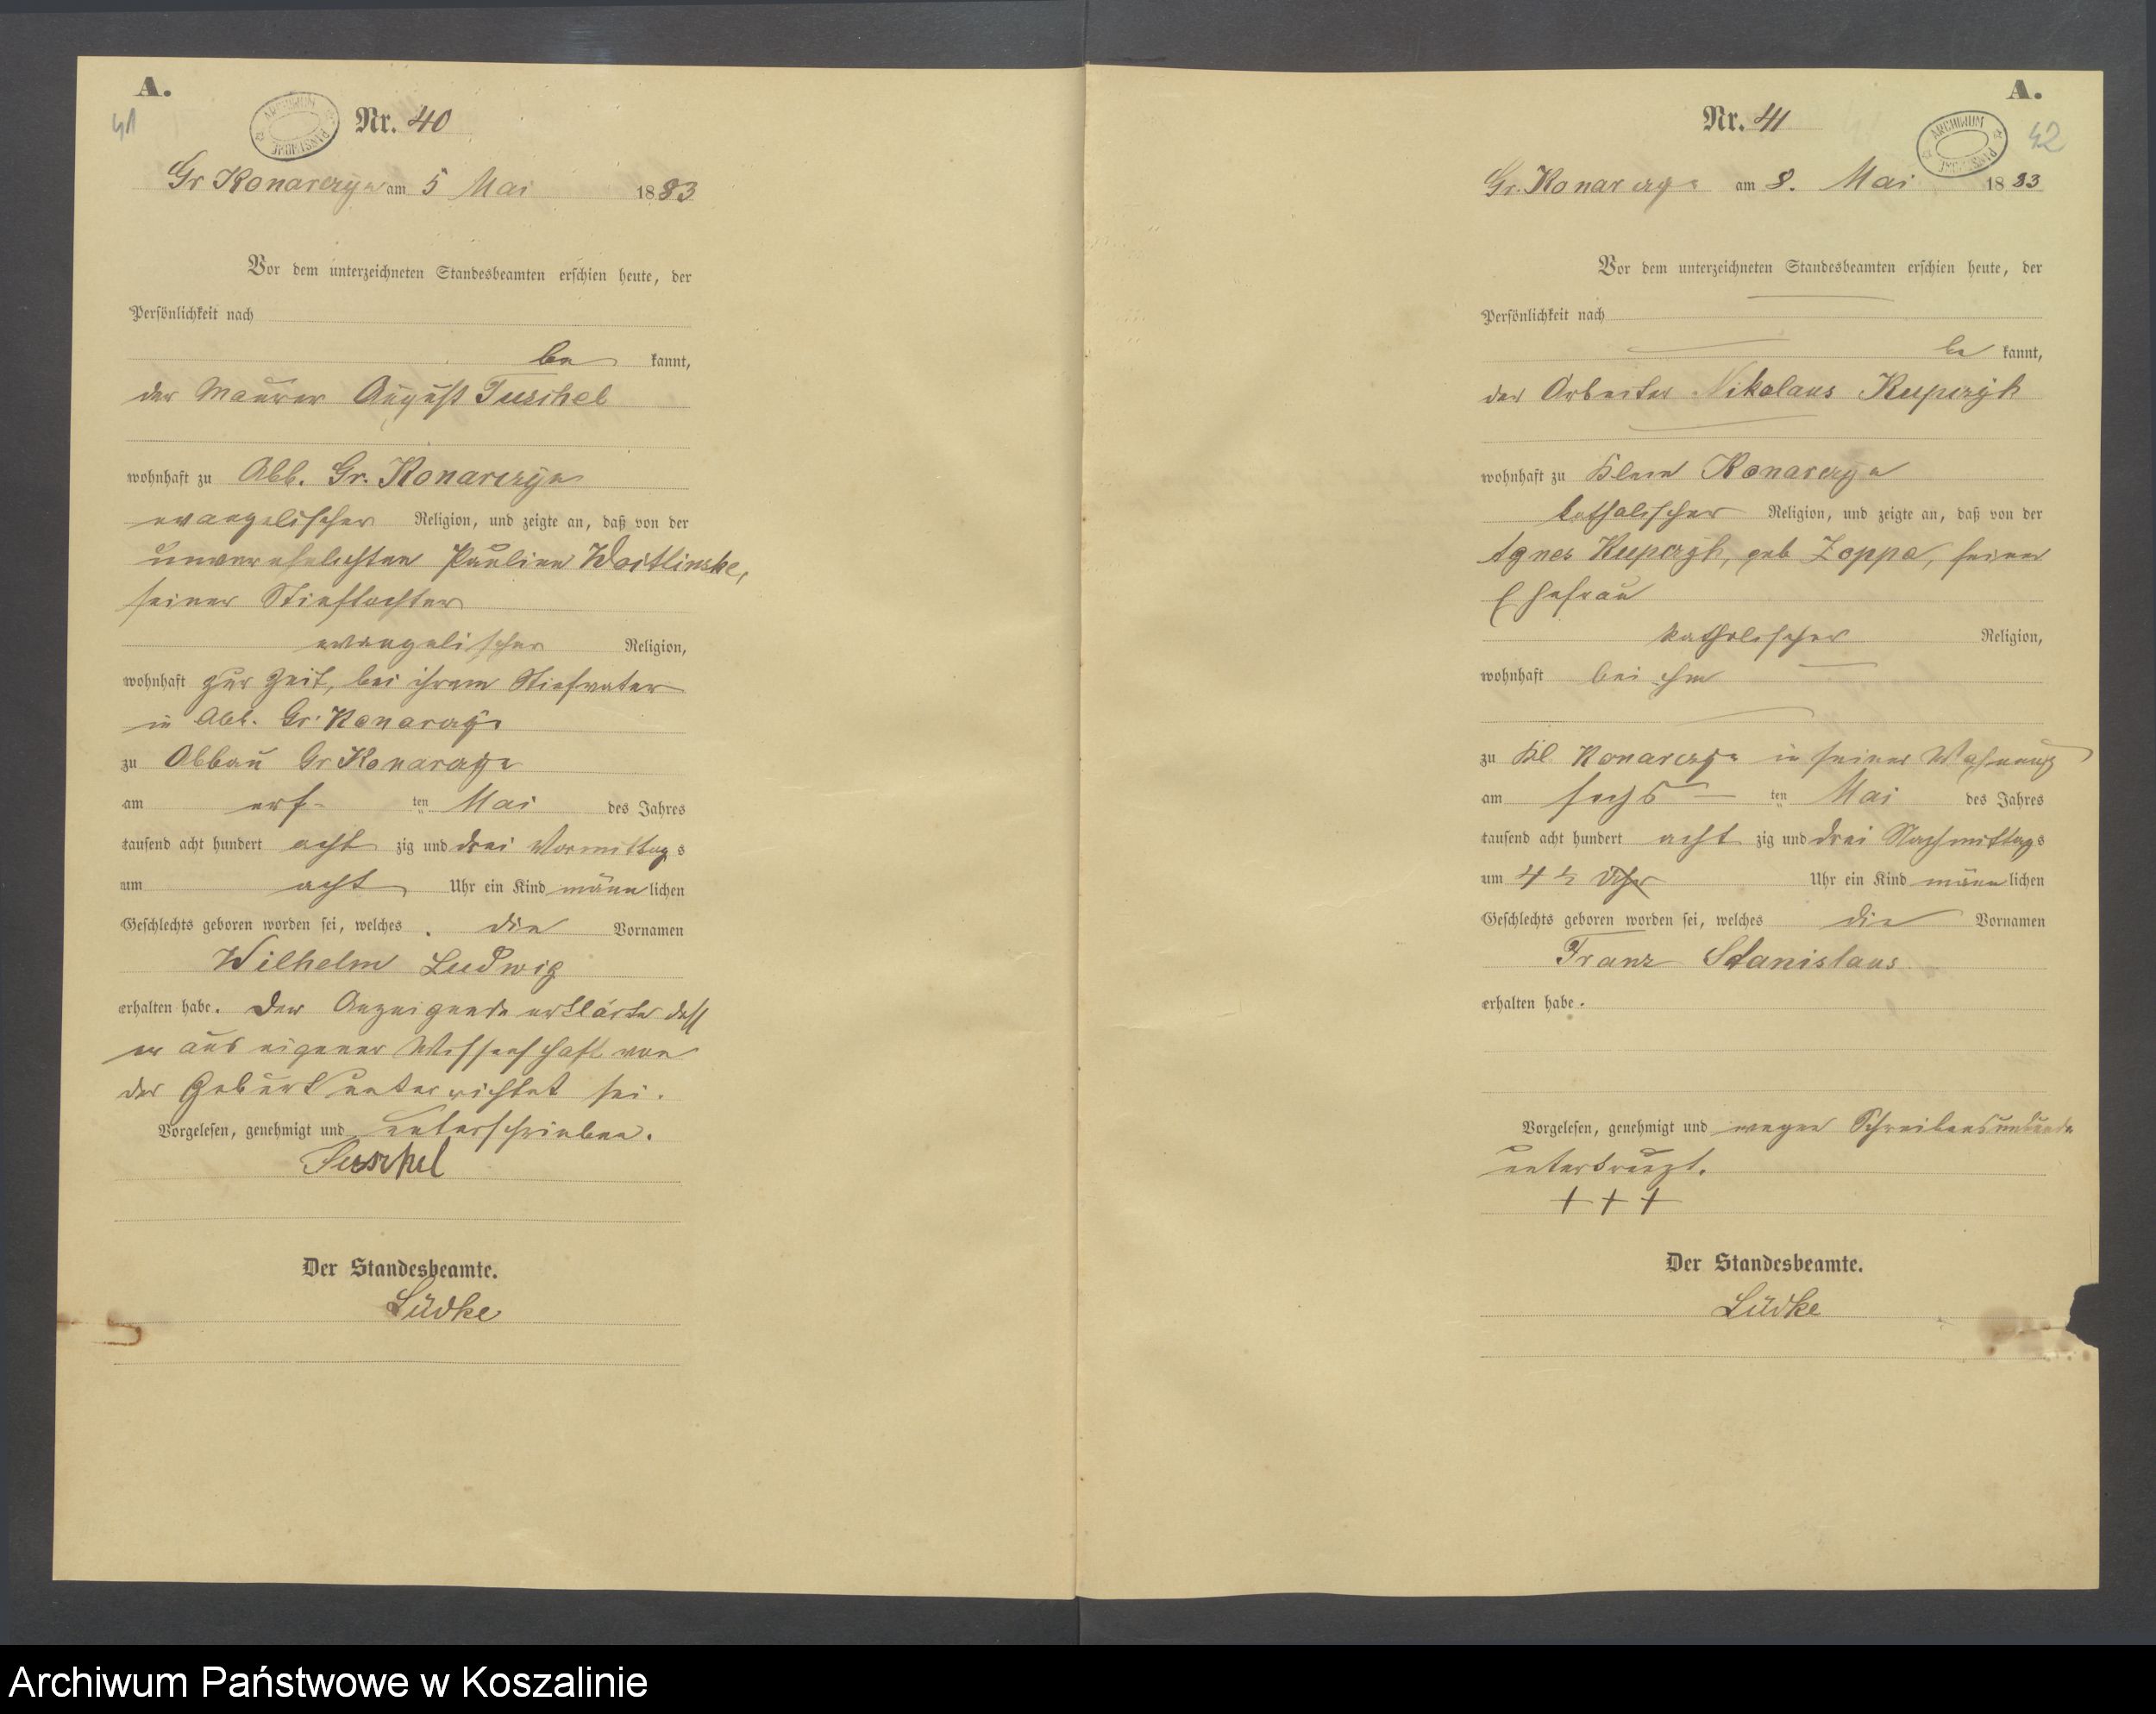 A.
41
ARCHIWUM PAŃSTWOWE
Nr. 40
Gr Konarczyn am 5 Mai 1883
Vor dem unterzeichneten Standesbeamten erschien heute, der
Persönlichkeit nach
be kannt,
der Maurer August Tuschel
wohnhaft zu Abb. Gr. Konarczyn
evangelischer Religion, und zeigte an, daß von der
unverehelichten Pauline Woitlinske,
seiner Stieftochter
evangelischer Religion,
wohnhaft zur Zeit, bei ihrem Stiefvater
in Abb. Gr. Konarczyn
zu Abbau Gr Konarczyn
am ten Mai des Jahres
tausend acht hundert acht zig und drei Vormittags
um acht Uhr ein Kind männlichen
Geschlechts geboren worden sei, welches die Vornamen
Wilhelm Ludwig
erhalten habe. Der Anzeigende erklärte daß
er aus eigener Wissenschaft von
der Geburt unterrichtet sei.
Vorgelesen, genehmigt und unterschrieben.
Tuschel
Der Standesbeamte.
Lüdke
A.
42
ARCHIWUM PAŃSTWOWE
Nr. 41
Gr. Konarczyn am 8. Mai 1883
Vor dem unterzeichneten Standesbeamten erschien heute, der
Persönlichkeit nach
be kannt,
der Arbeiter Nikolaus Kupczyk
wohnhaft zu Klein Konarczyn
katholischer Religion, und zeigte an, daß von der
Agnes Kupczyk, geb Zoppa, seiner
Ehefrau
katholischer Religion,
wohnhaft bei ihm
zu Kl Konarczyn in seiner Wohnung
am sechs ten Mai des Jahres
tausend acht hundert acht zig und drei Nachmittags
um 4 ½ Uhr Uhr ein Kind männlichen
Geschlechts geboren worden sei, welches die Vornamen
Franz Stanislaus
erhalten habe.
Vorgelesen, genehmigt und wegen Schreibensunkunde
unterkreuzt.
+ + +
Der Standesbeamte.
Lüdke
Archiwum Państwowe w Koszalinie